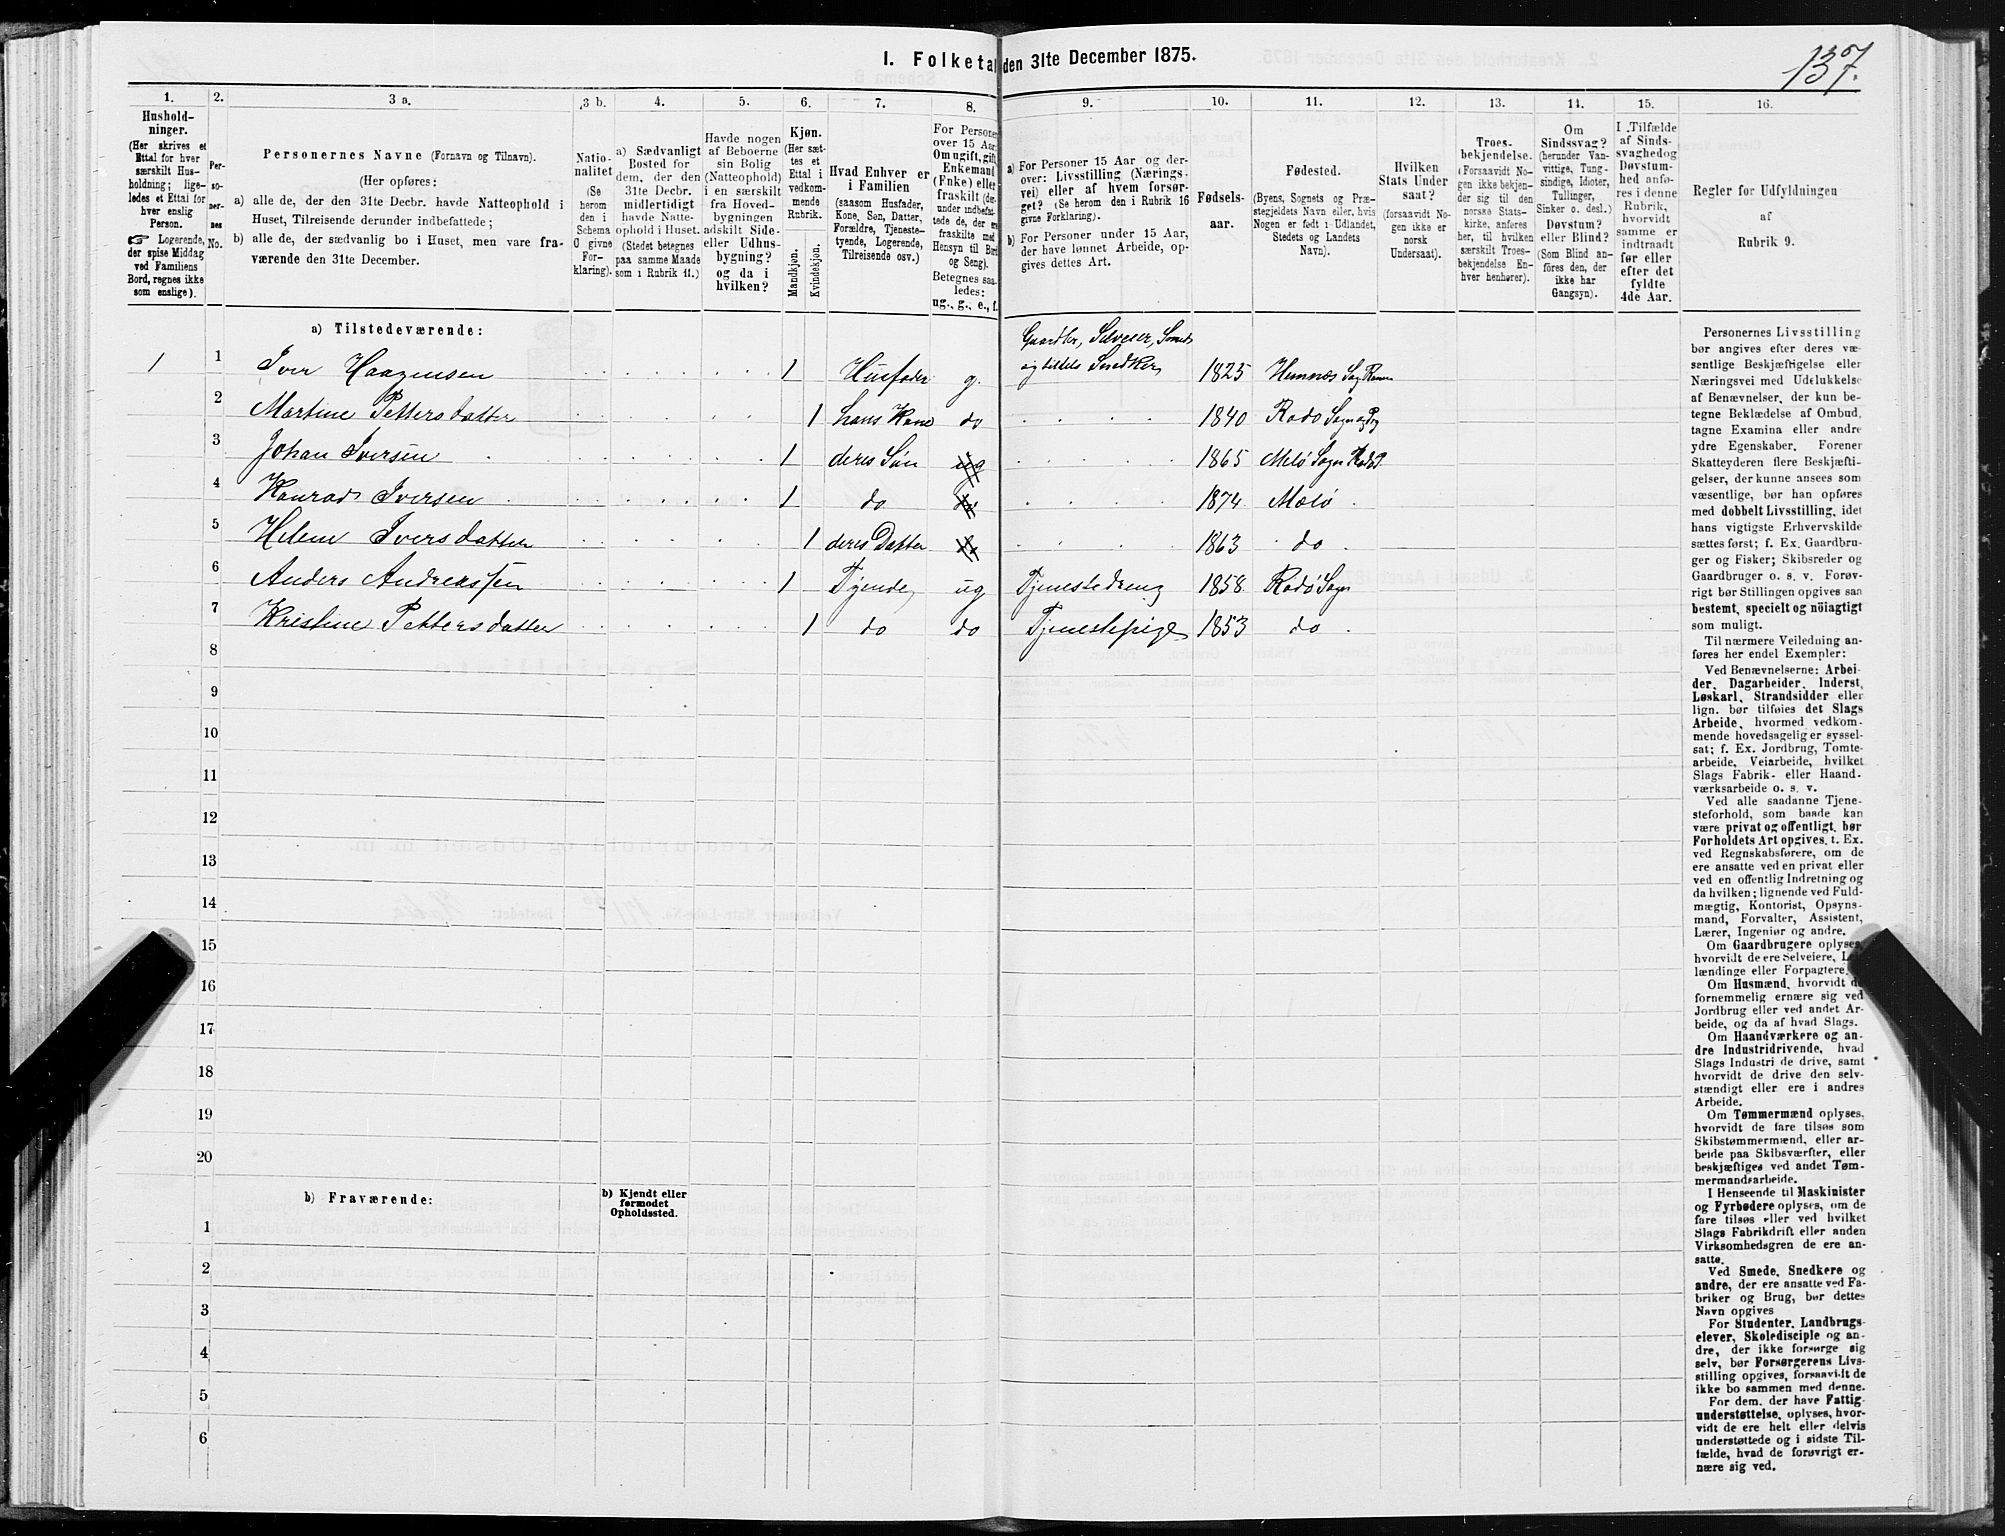 I. Folketal den 31te December 1875.
137.
1. 2. 3 a. 3 b. 4. 5. 6. 7. 8. 9. 10. 11. 12. 13. 14. 15. 16.
Hushold-
ninger.
(Her skrives et
Ettal for hver
særskilt Hus-
holdning; lige-
ledes et Ettal for
hver enslig
Person.
☞ Logerende,
der spise Middag
ved Familiens
Bord, regnes ikke
som enslige).
Per-
so-
ner-
nes
No.
Personernes Navne (Fornavn og Tilnavn).
(Her opføres:
a) alle de, der den 31te Decbr. havde Natteophold i
Huset, Tilreisende derunder indbefattede;
b) alle de, der sædvanlig bo i Huset, men vare fra-
værende den 31te December.
Natio-
nalitet
(Se
herom
den i
Schema
O givne
For-
klaring).
a) Sædvanligt
Bosted for
dem, der den
31te Decbr.
midlertidigt
havde Natte-
ophold i Huset.
(Stedet betegnes
paa samme Maade
som i Rubrik 11.)
Havde nogen
af Beboerne
sin Bolig
(Natteophold)
i en særskilt
fra Hoved-
bygningen
adskilt Side-
eller Udhus-
bygning?
og da i
hvilken?
Kjøn.
(Her sæt-
tes et
Ettal i
vedkom-
mende
Rubrik.
Mandkjøn.
Kvindekjøn.
Hvad Enhver er
i Familien
(saasom Husfader,
Kone, Søn, Datter,
Forældre, Tjeneste-
tyende, Logerende,
Tilreisende osv.)
For Personer
over 15 Aar:
Om ugift, gift,
Enkemand
(Enke) eller
fraskilt (der-
under indbefat-
tede de, der ere
fraskilte med
Hensyn til Bord
og Seng).
Betegnes saa-
ledes:
ug., g., e., f.
a) For Personer 15 Aar og der-
over: Livsstilling (Nærings-
vei) eller af hvem forsør-
get? (Se herom den i Rubrik 16
givne Forklaring).
b) For Personer under 15 Aar,
der have lønnet Arbeide, op-
gives dettes Art.
Fødsels-
aar.
Fødested.
(Byens, Sognets og Præ-
stegjeldets Navn eller, hvis
Nogen er født i Udlandet,
Stedets og Landets
Navn).
Hvilken
Stats Under
saat?
(forsaavidt No-
gen ikke er
norsk
Undersaat).
Troes-
bekjendelse.
(Forsaavidt No-
gen ikke bekjen-
der sig til den
norske Stats-
kirke, anføres
her, til hvilken
særskilt Troes-
bekjendelse En-
hver henhører).
Om
Sindssvag?
(herunder Van-
vittige, Tung-
sindige, Idioter,
Tullinger,
Sinker o. desl.)
Døvstum?
eller Blind?
(Som Blind an-
føres den, der
ikke har
Gangsyn).
I Tilfælde
af Sinds-
svaghed og
Døvstum-
hed anfø-
res i denne
Rubrik,
hvorvidt
samme er
indtraadt
før eller
efter det
fyldte
4de Aar.
Regler for Udfyldningen
af
Rubrik 9.
a) Tilstedeværende:
1 1 Iver Haagensen 1 Husfader g. Gaardbr, Selveier, Smed
og tildels Snedker 1825 Hemnæs Sog Ranen
2 Martine Pettersdatter 1 hans Kone do 1840 Rødø Sogn og Prg
3 Johan Iversen 1 deres Søn ug 1865 Melø Sogn Rødø P.
4 Konrad Iversen 1 do do 1874 Melø
5 Helene Iversdatter 1 deres Datter do 1863 do
6 Anders Andreassen 1 Tyende ug Tjenestedreng 1858 Rødø Sogn
7 Kristine Pettersdatter 1 do do Tjenestepige 1853 do
8
9
10
11
12
13
14
15
16
17
18
19
20
b) Fraværende:
b) Kjendt eller
formodet
Opholdssted.
1
2
3
4
5
6
Personernes Livsstilling
bør angives efter deres væ-
sentlige Beskjæftigelse eller
Næringsvei med Udelukkelse
af Benævnelser, der kun be-
tegne Beklædelse af Ombud,
tagne Examina eller andre
ydre Egenskaber. Forener
Skatteyderen flere Beskjæfti-
gelser, der kunne ansees som
væsentlige, bør han opføres
med dobbelt Livsstilling, idet
hans vigtigste Erhvervskilde
sættes først; f. Ex. Gaardbru-
ger og Fisker; Skibsreder og
Gaardbruger o. s. v. Forøv-
rigt bør Stillingen opgives saa
bestemt, specielt og nöiagtigt
som muligt.
Til nærmere Veiledning an-
føres her endel Exempler:
Ved Benævnelserne: Arbei-
der, Dagarbeider, Inderst,
Løskarl, Strandsidder eller
lign. bør tilføies det Slags
Arbeide, hvormed vedkom-
mende hovedsagelig er syssel-
sat; f. Ex. Jordbrug, Tomte-
arbeide, Veiarbeide, hvilket
Slags Fabrik- eller Haand-
værksarbeide o. s. v.
Ved alle saadanne Tjene-
steforhold, som baade kan
være privat og offentligt, bør
Forholdets Art opgives, t. Ex.
ved Regnskabsførere, om de
ere ansatte ved en privat eller
ved en offentlig Indretning og
da hvilken; lignende ved Fuld-
mægtig, Kontorist, Opsyns-
mand, Forvalter, Assistent,
Lærer, Ingeniør og andre.
Om Gaardbrugere oplyses,
hvorvidt de ere Selveiere, Lei-
lændinge eller Forpagtere.
Om Husmænd, hvorvidt de
fornemmelig ernære sig ved
Jordbrug eller ved andet Ar-
beide, og da af hvad Slags.
Om Haandværkere og an-
dre Industridrivende, hvad
Slags Industri de drive, samt
hvorvidt de drive den selv-
stændigt eller ere i andres
Arbeide.
Om Tømmermænd oplyses,
hvorvidt de fare tilsøs som
Skibstømmermænd, eller ar-
beide paa Skibsværfter, eller
beskjæftiges ved andet Tøm-
mermandsarbeide.
I Henseende til Maskinister
og Fyrbødere oplyses, om de
fare tilsøs eller ved hvilket
Slags Fabrikdrift eller anden
Virksomhedsgren de ere an-
satte.
Ved Smede, Snedkere og
andre, der ere ansatte ved Fa-
briker og Brug, bør dettes
Navn opgives
For Studenter, Landbrugs-
elever, Skoledisciple og an-
dre, der ikke forsørge sig
selv, bør Forsørgerens Livs-
stilling opgives, forsaavidt de
ikke bo sammen med denne.
For dem, der have Fattig-
understøttelse, oplyses, hvor-
vidt de ere helt eller delvis
understøttede og i sidste Til-
fælde, hvad de forøvrigt er-
nære sig ved.